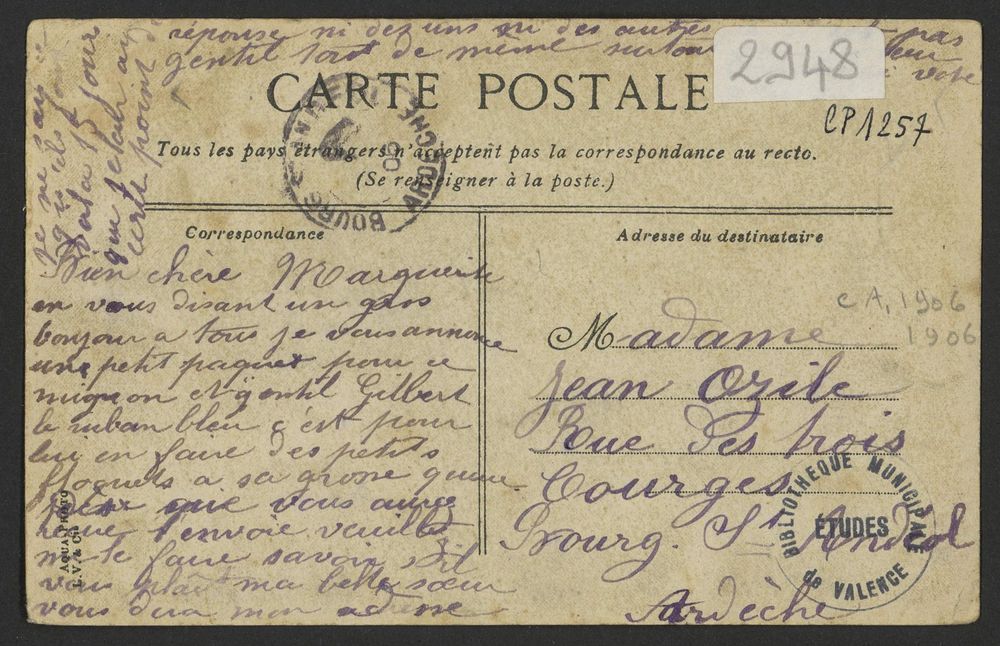 réponse ni des uns ni des autres pas
gentil tout de même surtout votre
je ne sais
qu'ils
voila 15 jours
que j'etais au
point
2948
CP1257
CARTE POSTALE
Tous les pays étrangers n'acceptent pas la correspondance au recto.
(Se renseigner à la poste.)
BOURG-ST-ANDÉOL ARDECHE
Correspondance
Adresse du destinataire
Bien chère Marguerite
en vous disant un gros
bonjour a tous je vous annonce
un petit paquet pour ce
mignon et gentil Gilbert
le ruban bleu c'est pour
lui en faire des petits
floquets a sa grosse queue
que vous aurez
reçue l'envoie veuillez
me le faire savoir s'il
vous plait ma belle sœur
vous dira mon adresse
CA, 1906
1906
Madame
Jean Ozile
Rue des trois
Courges
Bourg. St Andéol
Ardèche
BIBLIOTHEQUE MUNICIPALE
ÉTUDES
de VALENCE
AQUA-PHOTO
L.V. & Cie